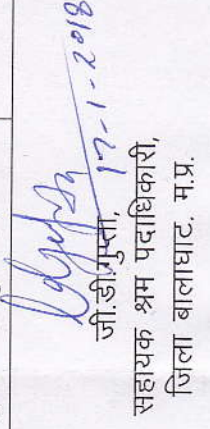 17-1-2018
जी.डी.गुप्ता,
सहायक श्रम पदाधिकारी,
जिला बालाघाट. म.प्र.